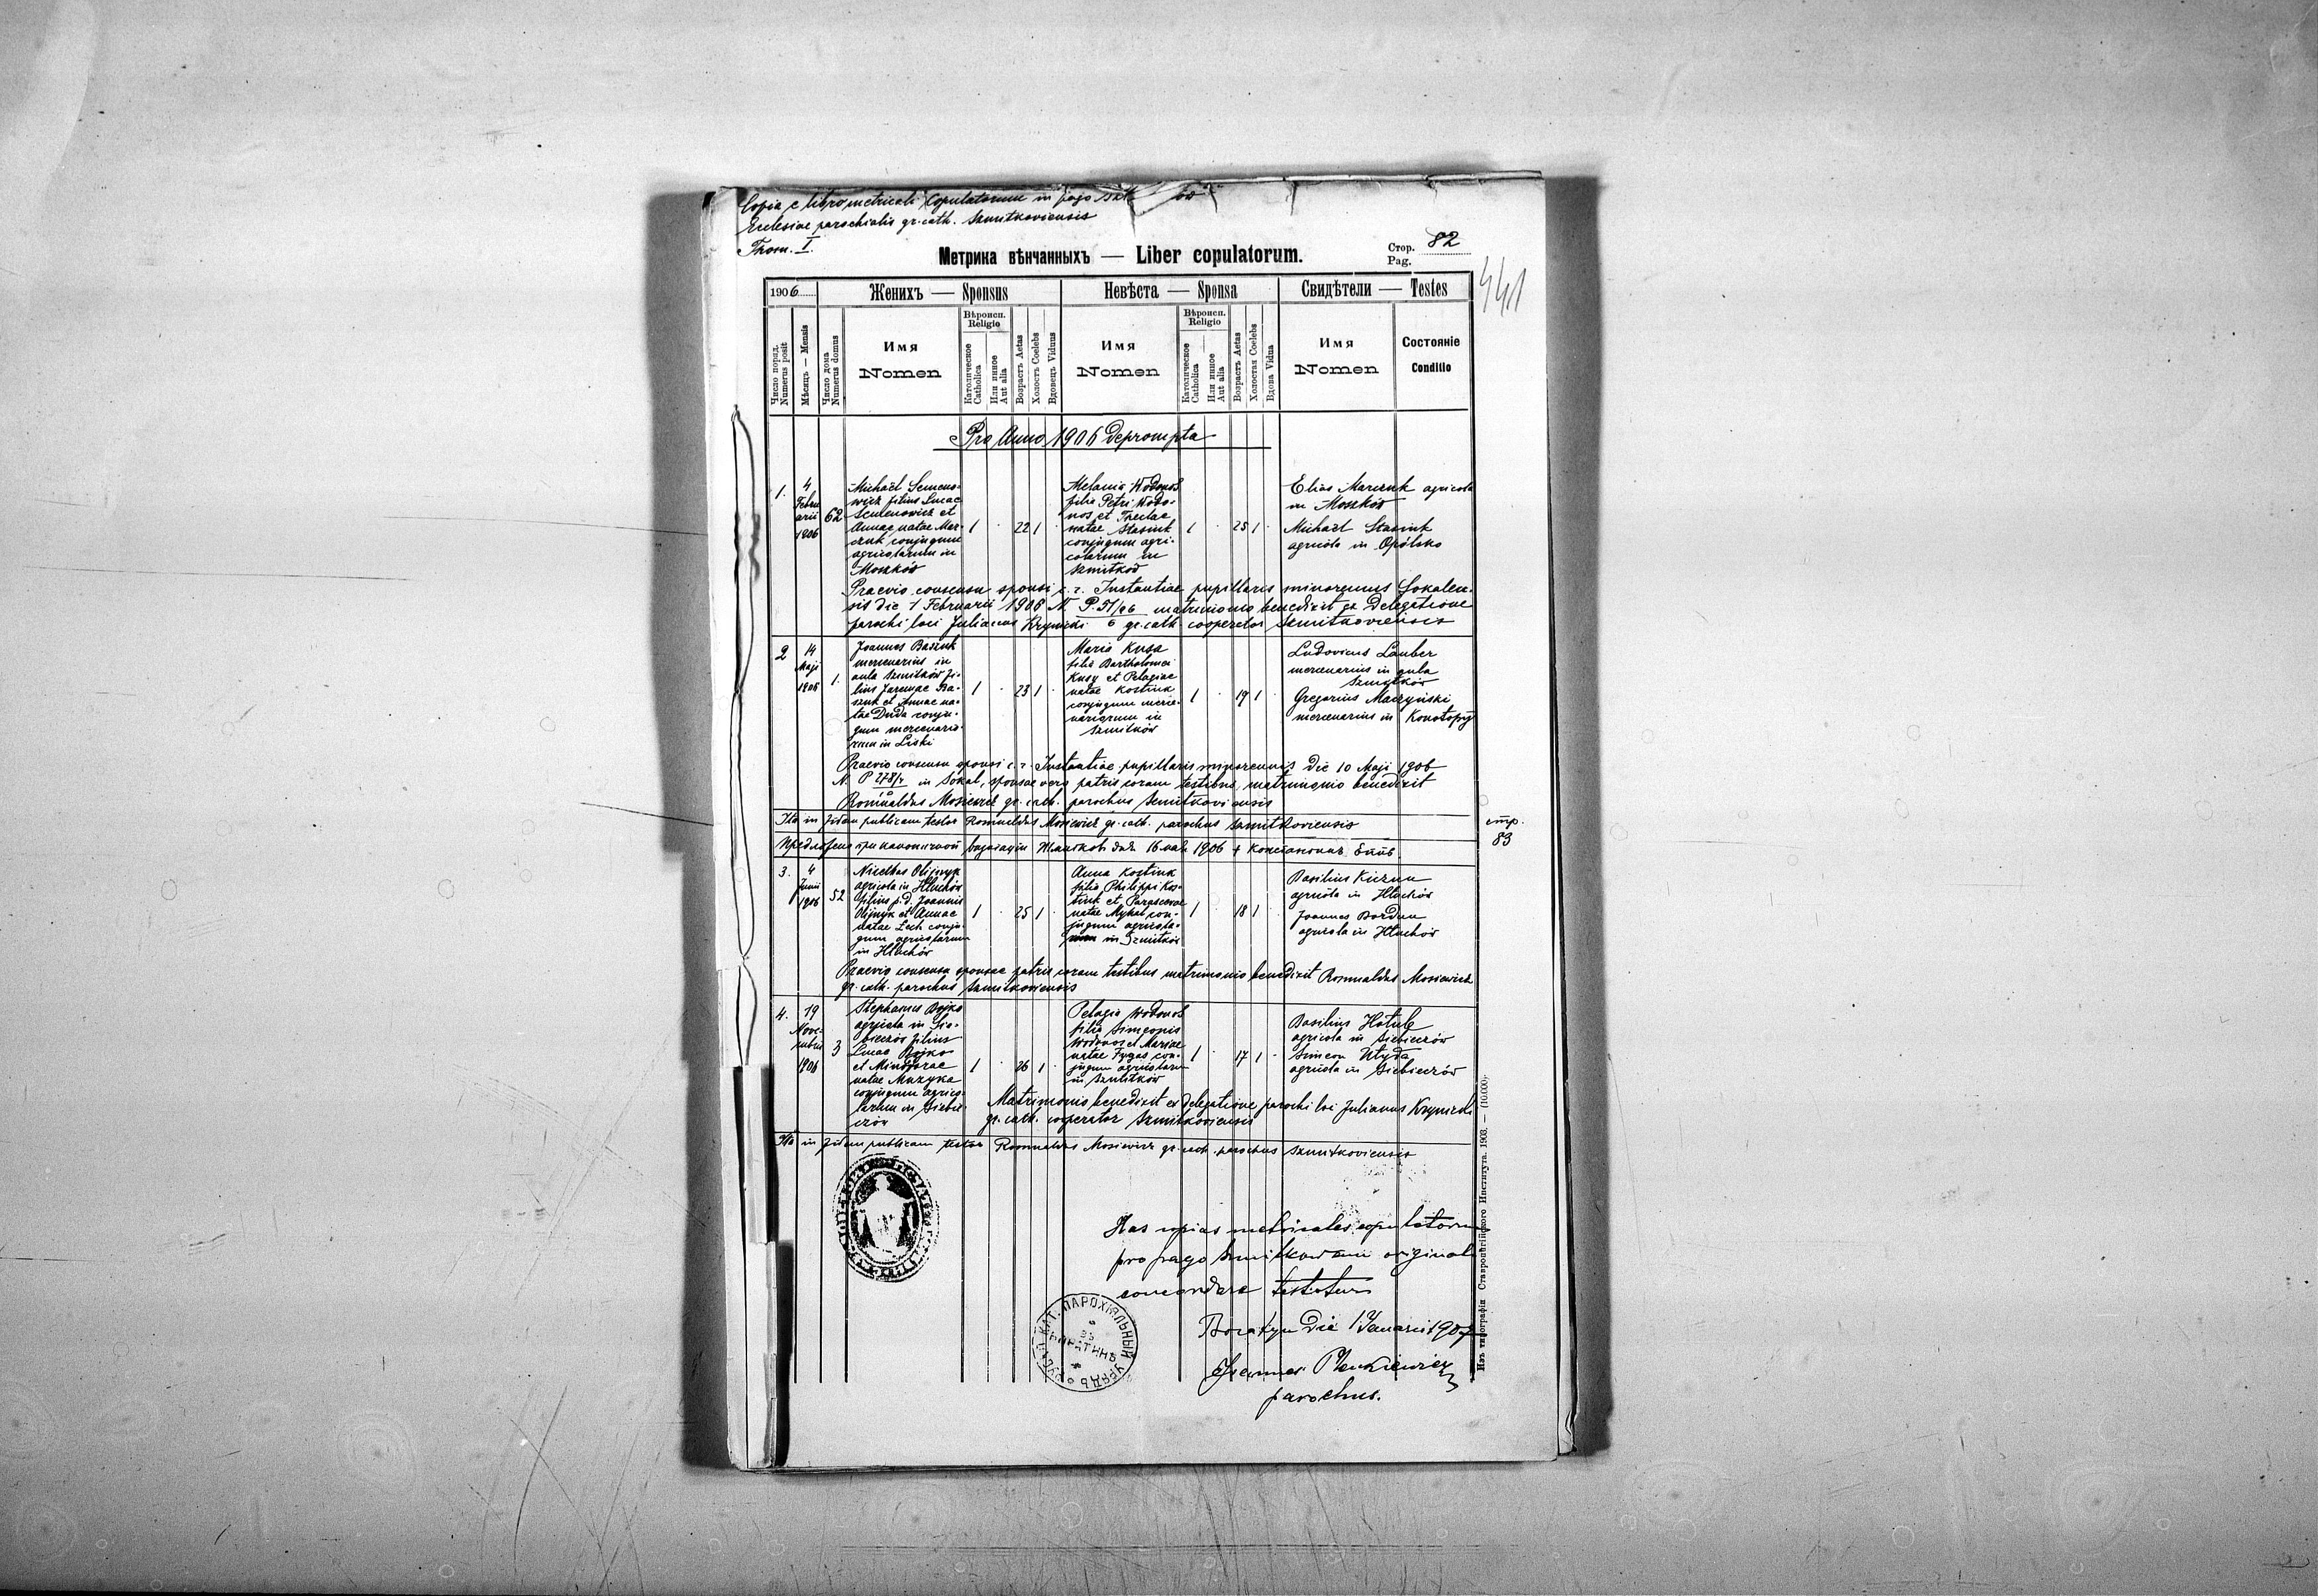 Copia e libro metricali Copulatorum in pago
Ecclesiae parochialis gr. cath. Szmitkoviensis
Thom. I.
Метрика вѣнчанныхъ — Liber copulatorum.
Стор. 82
Pag.
441
1906
Женихъ — Sponsus
Невѣста — Sponsa
Свидѣтели — Testes
Число поряд.
Numerus posit
Мѣсяцъ — Mensis
Число дома
Numerus domus
Имя
Nomen
Вѣроисп.
Religio
Католическое
Catholica
Или инное
Aut alia
Возрастъ Aetas
Холостъ Coelebs
Вдовецъ Viduus
Имя
Nomen
Вѣроисп.
Religio
Католическое
Catholica
Или инное
Aut alia
Возрастъ Aetas
Холостая Coelebs
Вдова Vidua
Имя
Nomen
Состояніе
Conditio
Pro Anno 1906 deprompta
1.
4
Febru
arii
1906
62
Michaël Semeno-
wicz filius Lucae
Semenowicz et
Annae natae Mar-
czuk conjugum
agricolarum in
Moszków
1
22 1
Melania Wodonos
filia Petri Wodo-
nos et Theclae
natae Stasiuk
conjugum agri-
colarum in
Szmitków
1
25 1
Elias Marczuk agricola
in Moszków
Michaël Stasiuk
agricola in Opólsko
Praevio consensu sponsi c. r. Instantiae pupillaris minorennis Sokalen-
sis die 1 Februarii 1906 N. P. 51/06 matrimonio benedixit ex delegatione
6
parochi loci Julianus Krynicki gr. cath. cooperator Szmitkoviensis
2
14
Maji
1906
1.
Joannes Baszuk
mercenarius in
aula Szmitków fi-
lius Jaremae Ba-
szuk et Annae na-
tae Duda conju-
gum mercenario-
rum in Liski
1
23 1
Maria Kusa
filia Bartholomei
Kusy et Pelagiae
natae Kostiuk
conjugum merce-
nariorum in
Szmitków
1
19 1
Ludovicus Lauber
mercenarius in aula
Szmitków
Gregorius Maczyński
mercenarius in Konotopy
Praevio consensu sponsi c. r. Instantiae pupillaris minorennis die 10 Maji 1906
N. P 278/4 in Sokal, sponsae vero patris coram testibus, matrimonio benedixit
Romualdus Mosiewicz gr. cath. parochus Szmitkoviensis
Ita in fidem publicam testor Romualdus Mosiewicz gr. cath. parochus Szmitkoviensis
стр.
83
3.
4
Junii
1906
52
Nicetas Olijnyk
agricola in Hłuchów
filius p. d. Joannis
Olijnyk et Annae
natae Lech conju-
gum agricolarum
in Hłuchów
1
25 1
Anna Kostiuk
filia Philippi Kos-
tiuk et Parascevae
natae Mykal con-
jugum agricola-
rum in Szmitków
1
18 1
Basilius Kuzma
agricola in Hłuchów
Joannes Bordun
agricola in Hłuchów
Praevio consensu sponsae patris coram testibus matrimonio benedixit Romualdus Mosiewicz
gr. cath. parochus Szmitkoviensis
4.
19
Nove-
mbris
1906
3
Stephanus Bojko
agricola in Sie-
bieczów filius
Lucae Bojko
et Minodorae
natae Muzyka
conjugum agrico-
larum in Siebie-
czów
1
26 1
Pelagia Wodonos
filia Simeonis
Wodonos et Mariae
natae Fygas con-
jugum agricolarum
in Szmitków
1
17 1
Basilius Hotub
agricola in Siebieczów
Simeon Utyda
agricola in Siebieczów
Matrimonio benedixit ex delegatione parochi loci Julianus Krynicki
gr. cath. cooperator Szmitkoviensis
Ita in fidem publicam testor Romualdus Mosiewicz gr. cath. parochus Szmitkoviensis
Has copias metricales copulatorum
pro pago Szmitkow cum originali
concordare testatur
Boratyn die 1 Januarii 1907
Joannes
parochus.
КАТ. ПАРОХІЯЛЬНЫЙ УРЯДЪ
БОРАТИНѢ
Изъ типографіи Ставропигійского Института. 1903. — (10.000).